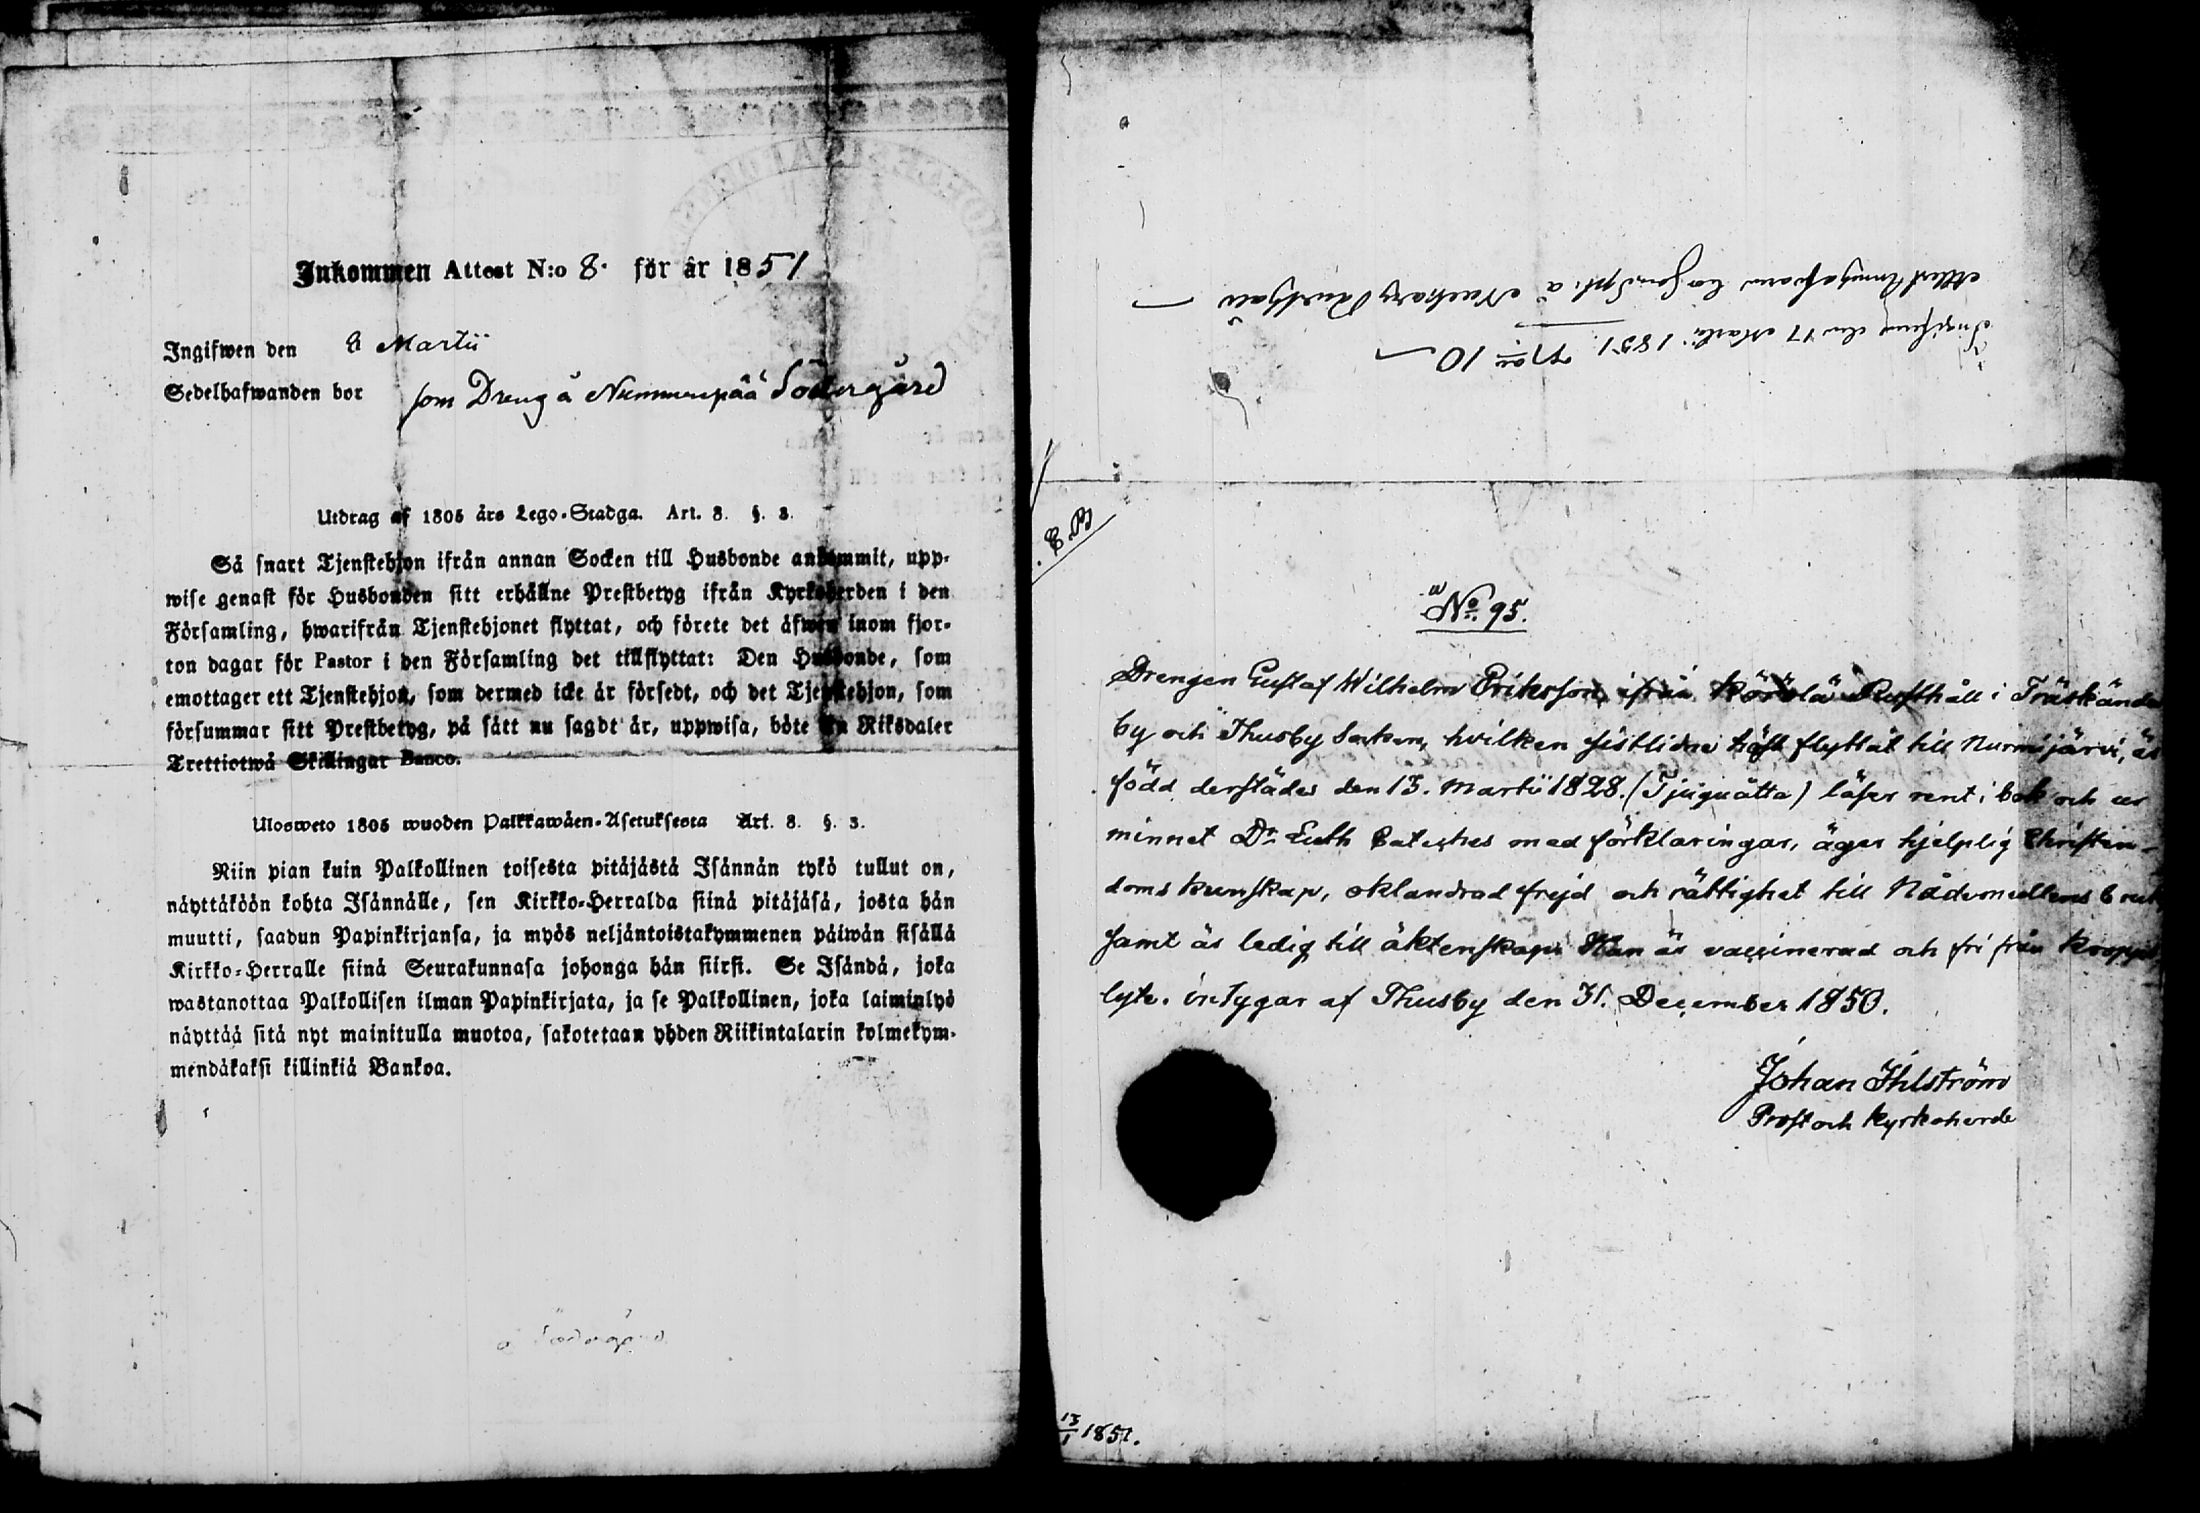 Inkommen Attest N:o 8. för år 1851
Ingifwen den 8 Martii
Sedelhafwanden bor som Dreng å Nummenpää Södergård
Utdrag af 1805 års Lego-Stadga. Art. 8. §. 3.
Så snart Tjenstehjon ifrån annan Socken till Husbonde ankommit, upp-
wise genast för Husbonden sitt erhållne Prestbetyg ifrån Kyrkoherden i den
Församling, hwarifrån Tjenstehjonet flyttat, och förete det äfwen inom fjor-
ton dagar för Pastor i den Församling det tillflyttat: Den Husbonde, som
emottager ett Tjenstehjon, som dermed icke är försedt, och det Tjenstehjon, som
försummar sitt Prestbetyg, på sätt nu sagdt är, uppwisa, böte en Riksdaler
Trettiotwå Skillingar Banco.
Ulosweto 1805 wuoden Palkkawäen-Asetuksesta Art. 8. §. 3.
Niin pian kuin Palkollinen toisesta pitäjästä Isännän tykö tullut on,
näyttäköön kohta Isännälle, sen Kirkko-Herralda siinä pitäjäsä, josta hän
muutti, saadun Papinkirjansa, ja myös neljäntoistakymmenen päiwän sisällä
Kirkko-Herralle siinä Seurakunnasa johonga hän siirsi. Se Isändä, joka
wastanottaa Palkollisen ilman Papinkirjata, ja se Palkollinen, joka laiminlyö
näyttää sitä nyt mainitulla muotoa, sakotetaan yhden Riikintalarin kolmekym-
mendäkaksi killinkiä Bankoa.
å Södergård
No 10
Ingifven den 17 Martii 1851.
E.B
No. 95.
Drengen Gustaf Wilhelm Eriksson, ifrån Körölä Rusthåll i Träskända
by och Thusby Socken, hvilken sistlidne höst flyttat till Nurmijärvi, är
född derstädes den 13. Martii 1828. (Tjuguåtta) läser rent i bok och ur
minnet Dr. Luth Cateches med förklaringar, äger hjelplig Christen-
doms kunskap, oklandrad frejd och rättighet till Nådemedlens bruk,
samt är ledig till äktenskap. Han är vaccinerad och fri från kropps
lyte. intygar af Thusby den 31. December 1850.
Johan Ihlström
Prost och Kyrkoherde
13/1 1851.